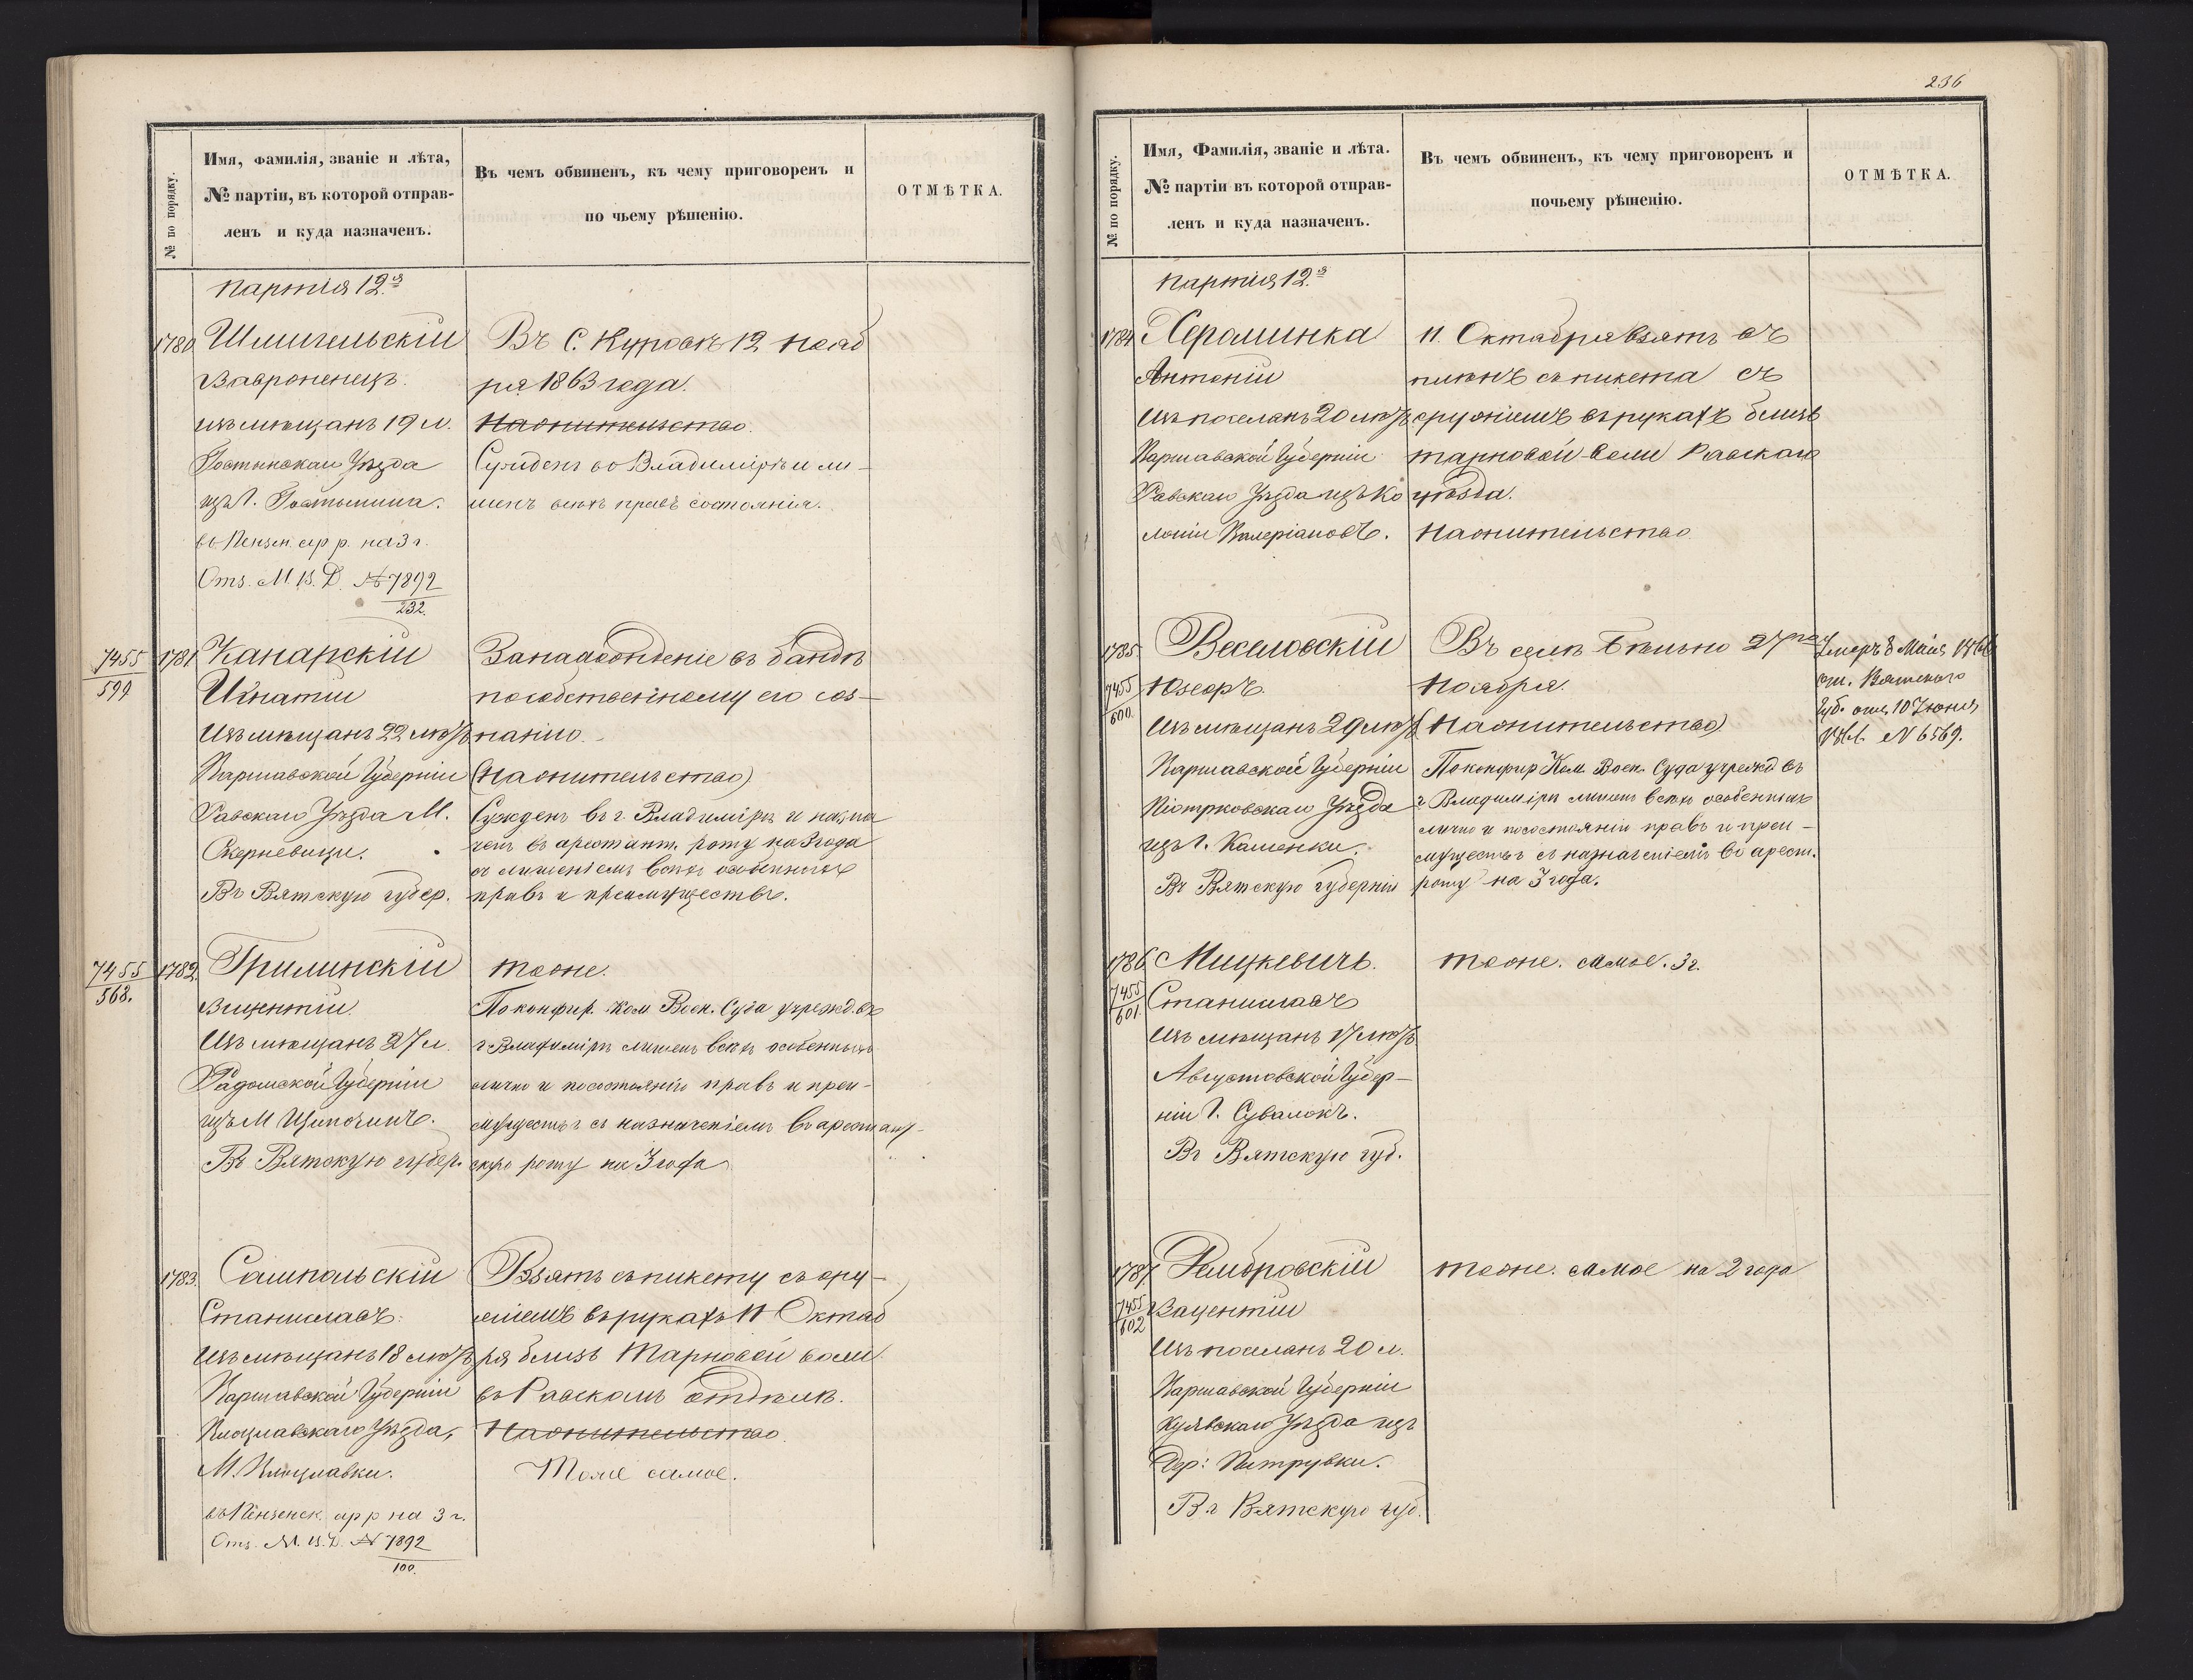 № по порядку.
Имя, Фамилія, званіе и лѣта,
№ партіи, въ которой отправ-
ленъ и куда назначенъ.
Въ чемъ обвиненъ, къ чему приговоренъ и
по чьему рѣшенію.
ОТМѢТКА.
Партія 12я
1780 Шмигельскій
Вавроненецъ.
изъ мѣщанъ 19 л.
Гостынскаго Уѣзда
изъ Г. Гостынина.
въ Пензен. ар р. на 3 г.
Отз. М. В. Д. № 7892
232.
Въ С. Куровѣ 12 Нояб
ря 1863 года.
На жительство.
Сужденъ во Владимірѣ и ли-
шенъ всѣхъ правъ состоянія.
7455
599
1781 Канарскій
Игнатій
Изъ мѣщанъ 22 лѣтъ
Варшавской Губерніи
Равскаго Уѣзда М.
Скерневицы.
Въ Вятскую губер.
За нахожденіе въ бандѣ
по собственному его соз-
нанію.
(На жительство)
Сужденъ въ г. Владимірѣ и назна
ченъ въ арестант. роту на 3 года
съ лишеніемъ всѣхъ особенныхъ
правъ и преимуществъ.
7455
568.
1782. Грилинскій
Вицентій
Изъ мѣщанъ 27 л.
Радомской Губерніи
изъ М
Въ Вятскую губер.
тоже.
По конфир. Ком. Воен. Суда учрежд. въ
г Владимірѣ лишенъ всѣхъ особенныхъ
лично и по состоянію правъ и преи-
муществъ съ назначеніемъ въ арестант-
скую роту на 3 года
1783. Сампольскій
Станиславъ.
Изъ мѣщанъ 18 лѣтъ
Варшавской Губерніи
Влоцлавскаго Уѣзда,
М. Влоцлавки.
въ Пензенск. ар р на 3 г.
Отз. М. В. Д. № 7892
100.
Взятъ съ пикету съ ору-
жіемъ въ рукахъ 11 Октяб
ря близъ Тарновой воли
въ Равскомъ отдѣлѣ.
На жительство.
Тоже самое.
236
№ по порядку.
Имя, Фамилія, званіе и лѣта.
№ партіи въ которой отправ-
ленъ и куда назначенъ.
Въ чемъ обвиненъ, къ чему приговоренъ и
почьему рѣшенію.
ОТМѢТКА.
Партія 12.я
1784 Хероминка
Антоній
Изъ поселянъ 20 лѣтъ
Варшавской Губерніи
Равскаго Уѣзда изъ Ко
лоніи Валеріановъ.
11. Октября взятъ въ
плѣнъ съ пикета съ
оружіемъ въ рукахъ близъ
Тарновой-Воли Равскаго
уѣзда.
На жительство
1785. Веселовскій
7455
600.
Юзефъ.
Изъ мѣщанъ 29 лѣтъ
Варшавской Губерніи
Піотрковскаго Уѣзда
изъ Г. Каменки.
Въ Вятскую губернію
Въ селѣ Бѣльно 27го
Ноября.
(На жительство)
По конфир Ком. Воен. Суда учрежд въ
г Владимірѣ лишенъ всѣхъ особенныхъ
лично и по состоянію правъ и преи-
муществъ съ назначеніемъ въ арест.
роту на 3 года.
Умеръ 8 Мая 1866
от. Вятскаго
Губ. отъ 10 Іюня
1866 № 6569.
1786 Мицкевичъ.
7455
601.
Станиславъ
Изъ мѣщанъ 17 лѣтъ
Августовской Губер-
ніи Г. Сувалокъ.
Въ Вятскую губ.
тоже. самое. 3 г.
1787 Домбровскій
7455
602
Вацентій
Изъ поселянъ 20 л.
Варшавской Губерніи
Куявскаго Уѣзда изъ
Дер: Питрувки.
Въ Вятскую губ.
тоже. самое на 2 года